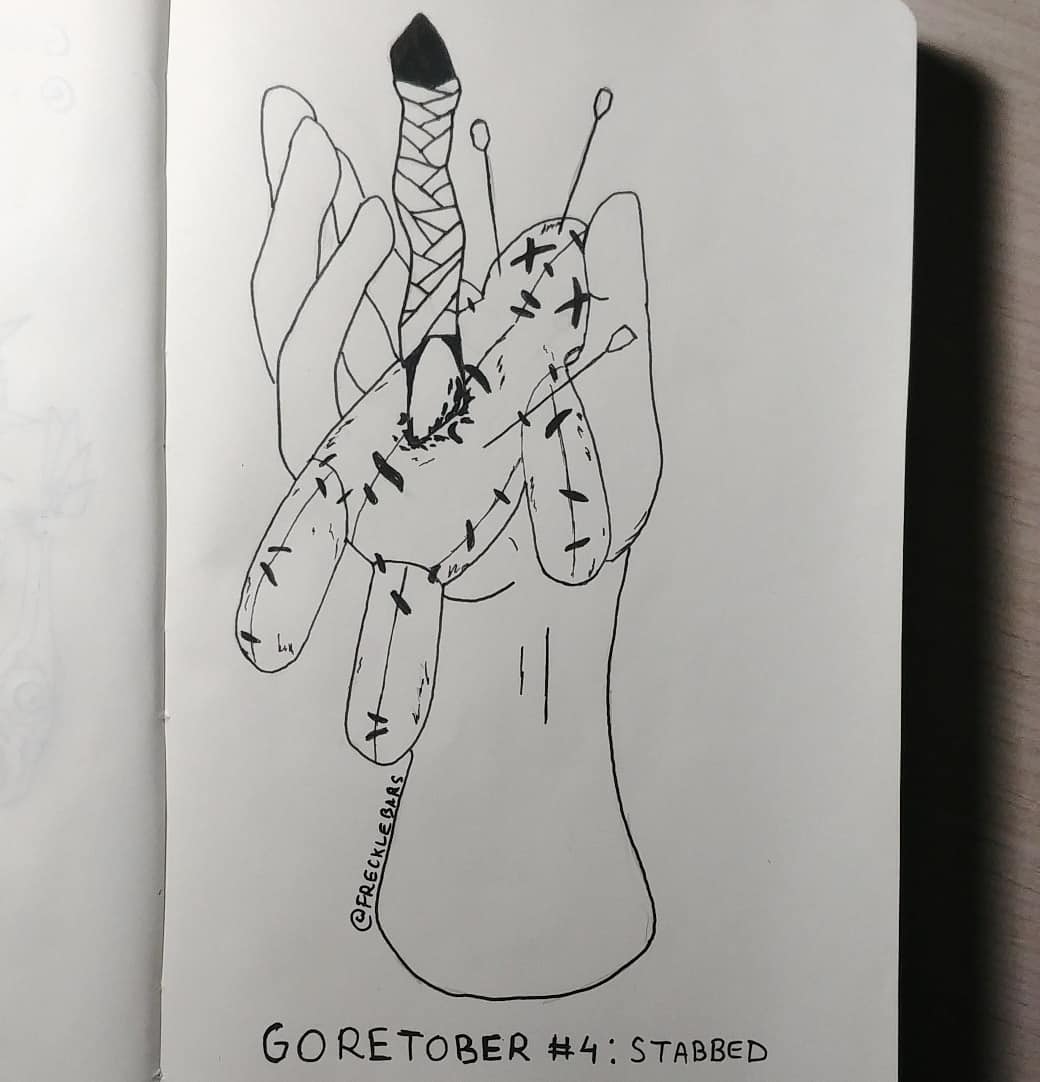 @FRECKLEBARS
GORETOBER #4: STABBED